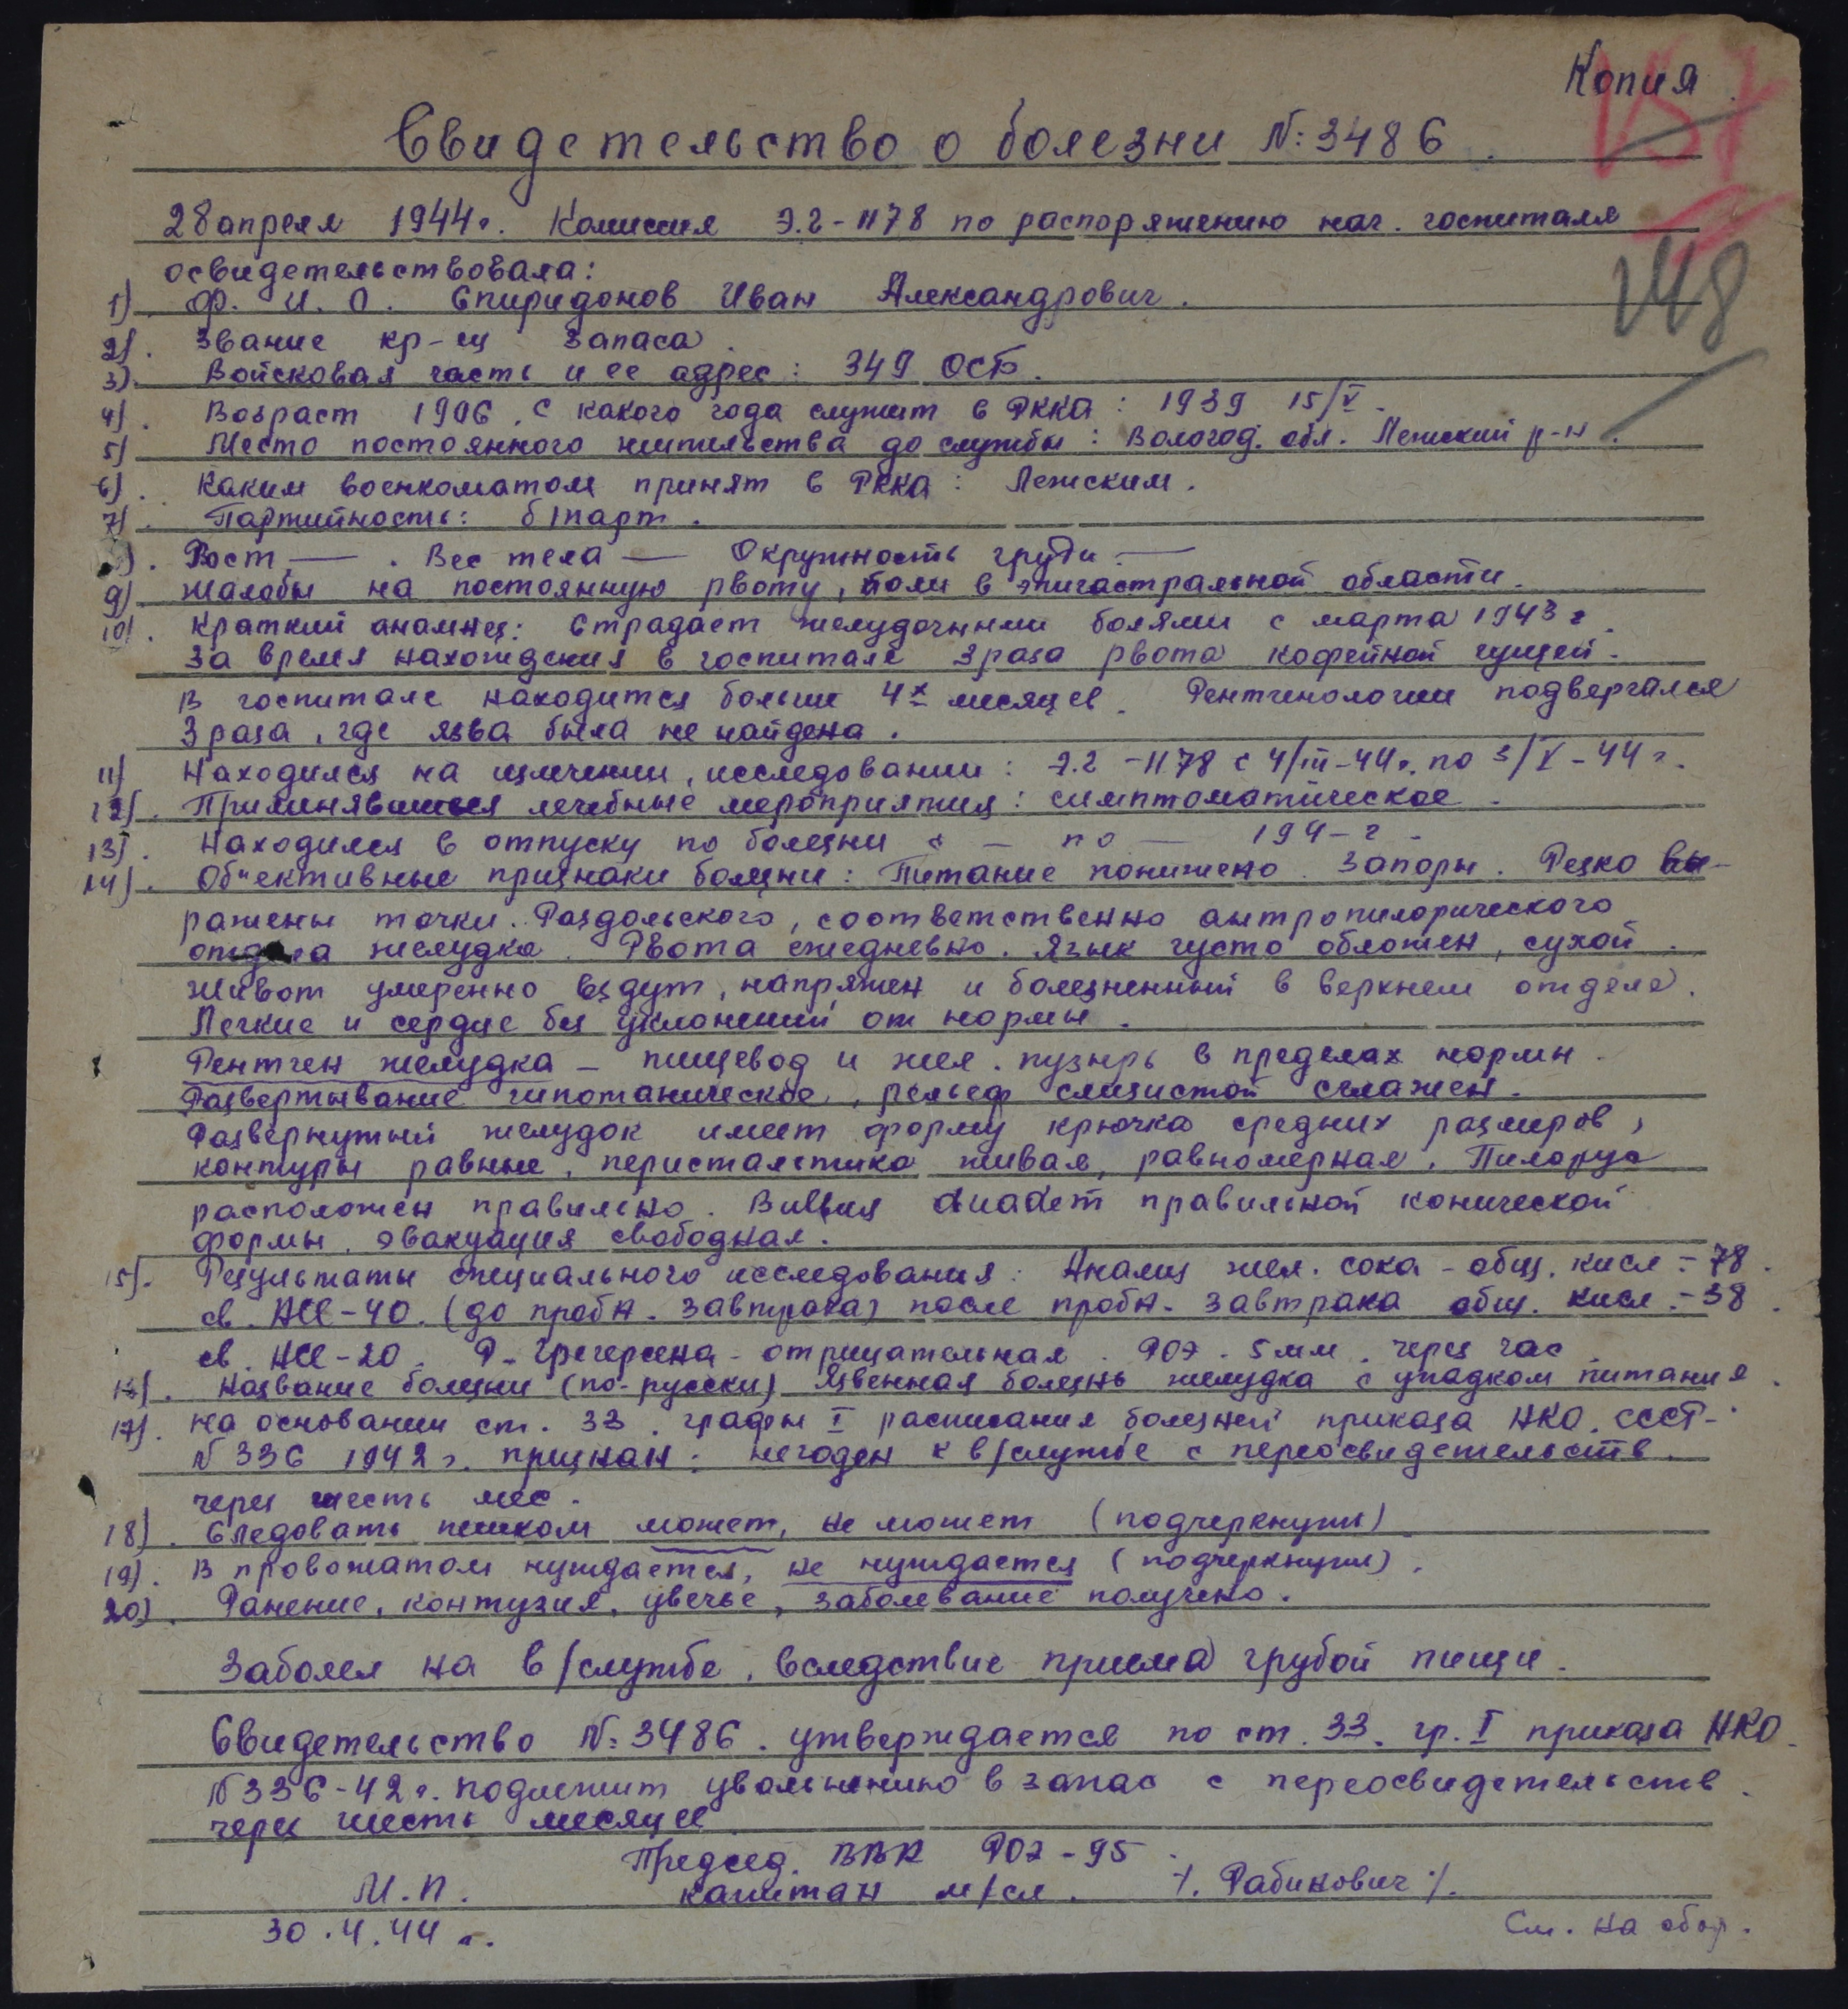 Копия
157
Свидетельство о болезни №: 3486.
148
28 апреля 1944 г. Комиссия Э.Г-1178 по распоряжению нач. госпиталя
освидетельствовала:
1). Ф. И. О. Спиридонов Иван Александрович.
2). Звание кр-ец запаса.
3). Войсковая часть и ее адрес: 349 ОСБ.
4). Возраст 1906. С какого года служит в РККА: 1939 15/V.
5) Место постоянного жительства до службы: Вологод. обл. Лежский р-н.
6). Каким военкоматом принят в РККА: Лежским.
7). Партийность: б/парт.
8). Рост — . Вес тела — Окружность груди —
9) Жалобы на постоянную рвоту, боли в эпигастральной области.
10). Краткий анамнез: Страдает желудочными болями с марта 1943 г.
За время нахождения в госпитале 3 раза рвота кофейной гущей.
В госпитале находится больше 4х месяцев. Рентгенологии подвергался
3 раза, где язва была не найдена.
11) Находился на излечении, исследовании: Э.Г-1178 с 4/III-44 г. по 3/V-44 г.
12). Применявшиеся лечебные мероприятия: симптоматическое.
13). Находился в отпуску по болезни с — по — 194- г.
14). Об"ективные признаки болезни: Питание понижено. Запоры. Резко вы-
ражены точки. Раздольского, соответственно антропилорического
отдела желудка. Рвота ежедневно. Язык густо обложен, сухой.
Живот умеренно вздут, напряжен и болезненный в верхнем отделе.
Легкие и сердце без уклонений от нормы.
Рентген желудка – пищевод и жел. пузырь в пределах нормы.
Развертывание гипотаническое, рельеф слизистой сглажен.
Развернутый желудок имеет форму крючка средних размеров,
контуры равные, перистальтика живая, равномерная. Пилорус
расположен правильно. правильной конической
формы. эвакуация свободная.
15). Результаты специального исследования: Анализ жел. сока – общ. кисл – 78.
св. HCl-40. (до пробн. завтрака) после пробн. завтрака общ. кисл. – 38.
св. HCl-20. Р. Грегерсена – отрицательная. РОЭ. 5 мм. через час.
16). Название болезни (по-русски) Язвенная болезнь желудка с упадком питания.
17). На основании ст. 33. графы I расписания болезней приказа НКО. СССР-
№ 336 1942 г. признан: негоден к в/службе с переосвидетельств.
через шесть мес.
18). Следовать пешком может, не может (подчеркнуть)
19). В провожатом нуждается, не нуждается (подчеркнуть).
20). Ранение, контузия, увечье, заболевание получено.
Заболел на в/службе, вследствие приема грубой пищи.
Свидетельство №: 3486. утверждается по ст. 33. гр. I приказа НКО.
№ 336-42 г. подлежит увольнению в запас с переосвидетельств.
через шесть месяцев
Председ. ВВК РОЭ-95.
М.П. капитан м/сл. /. Рабинович /.
30.4.44 г.
См. на обор.